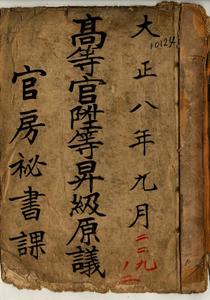 大正八年九月
10124
高等官陞等昇級原議
官房祕書課